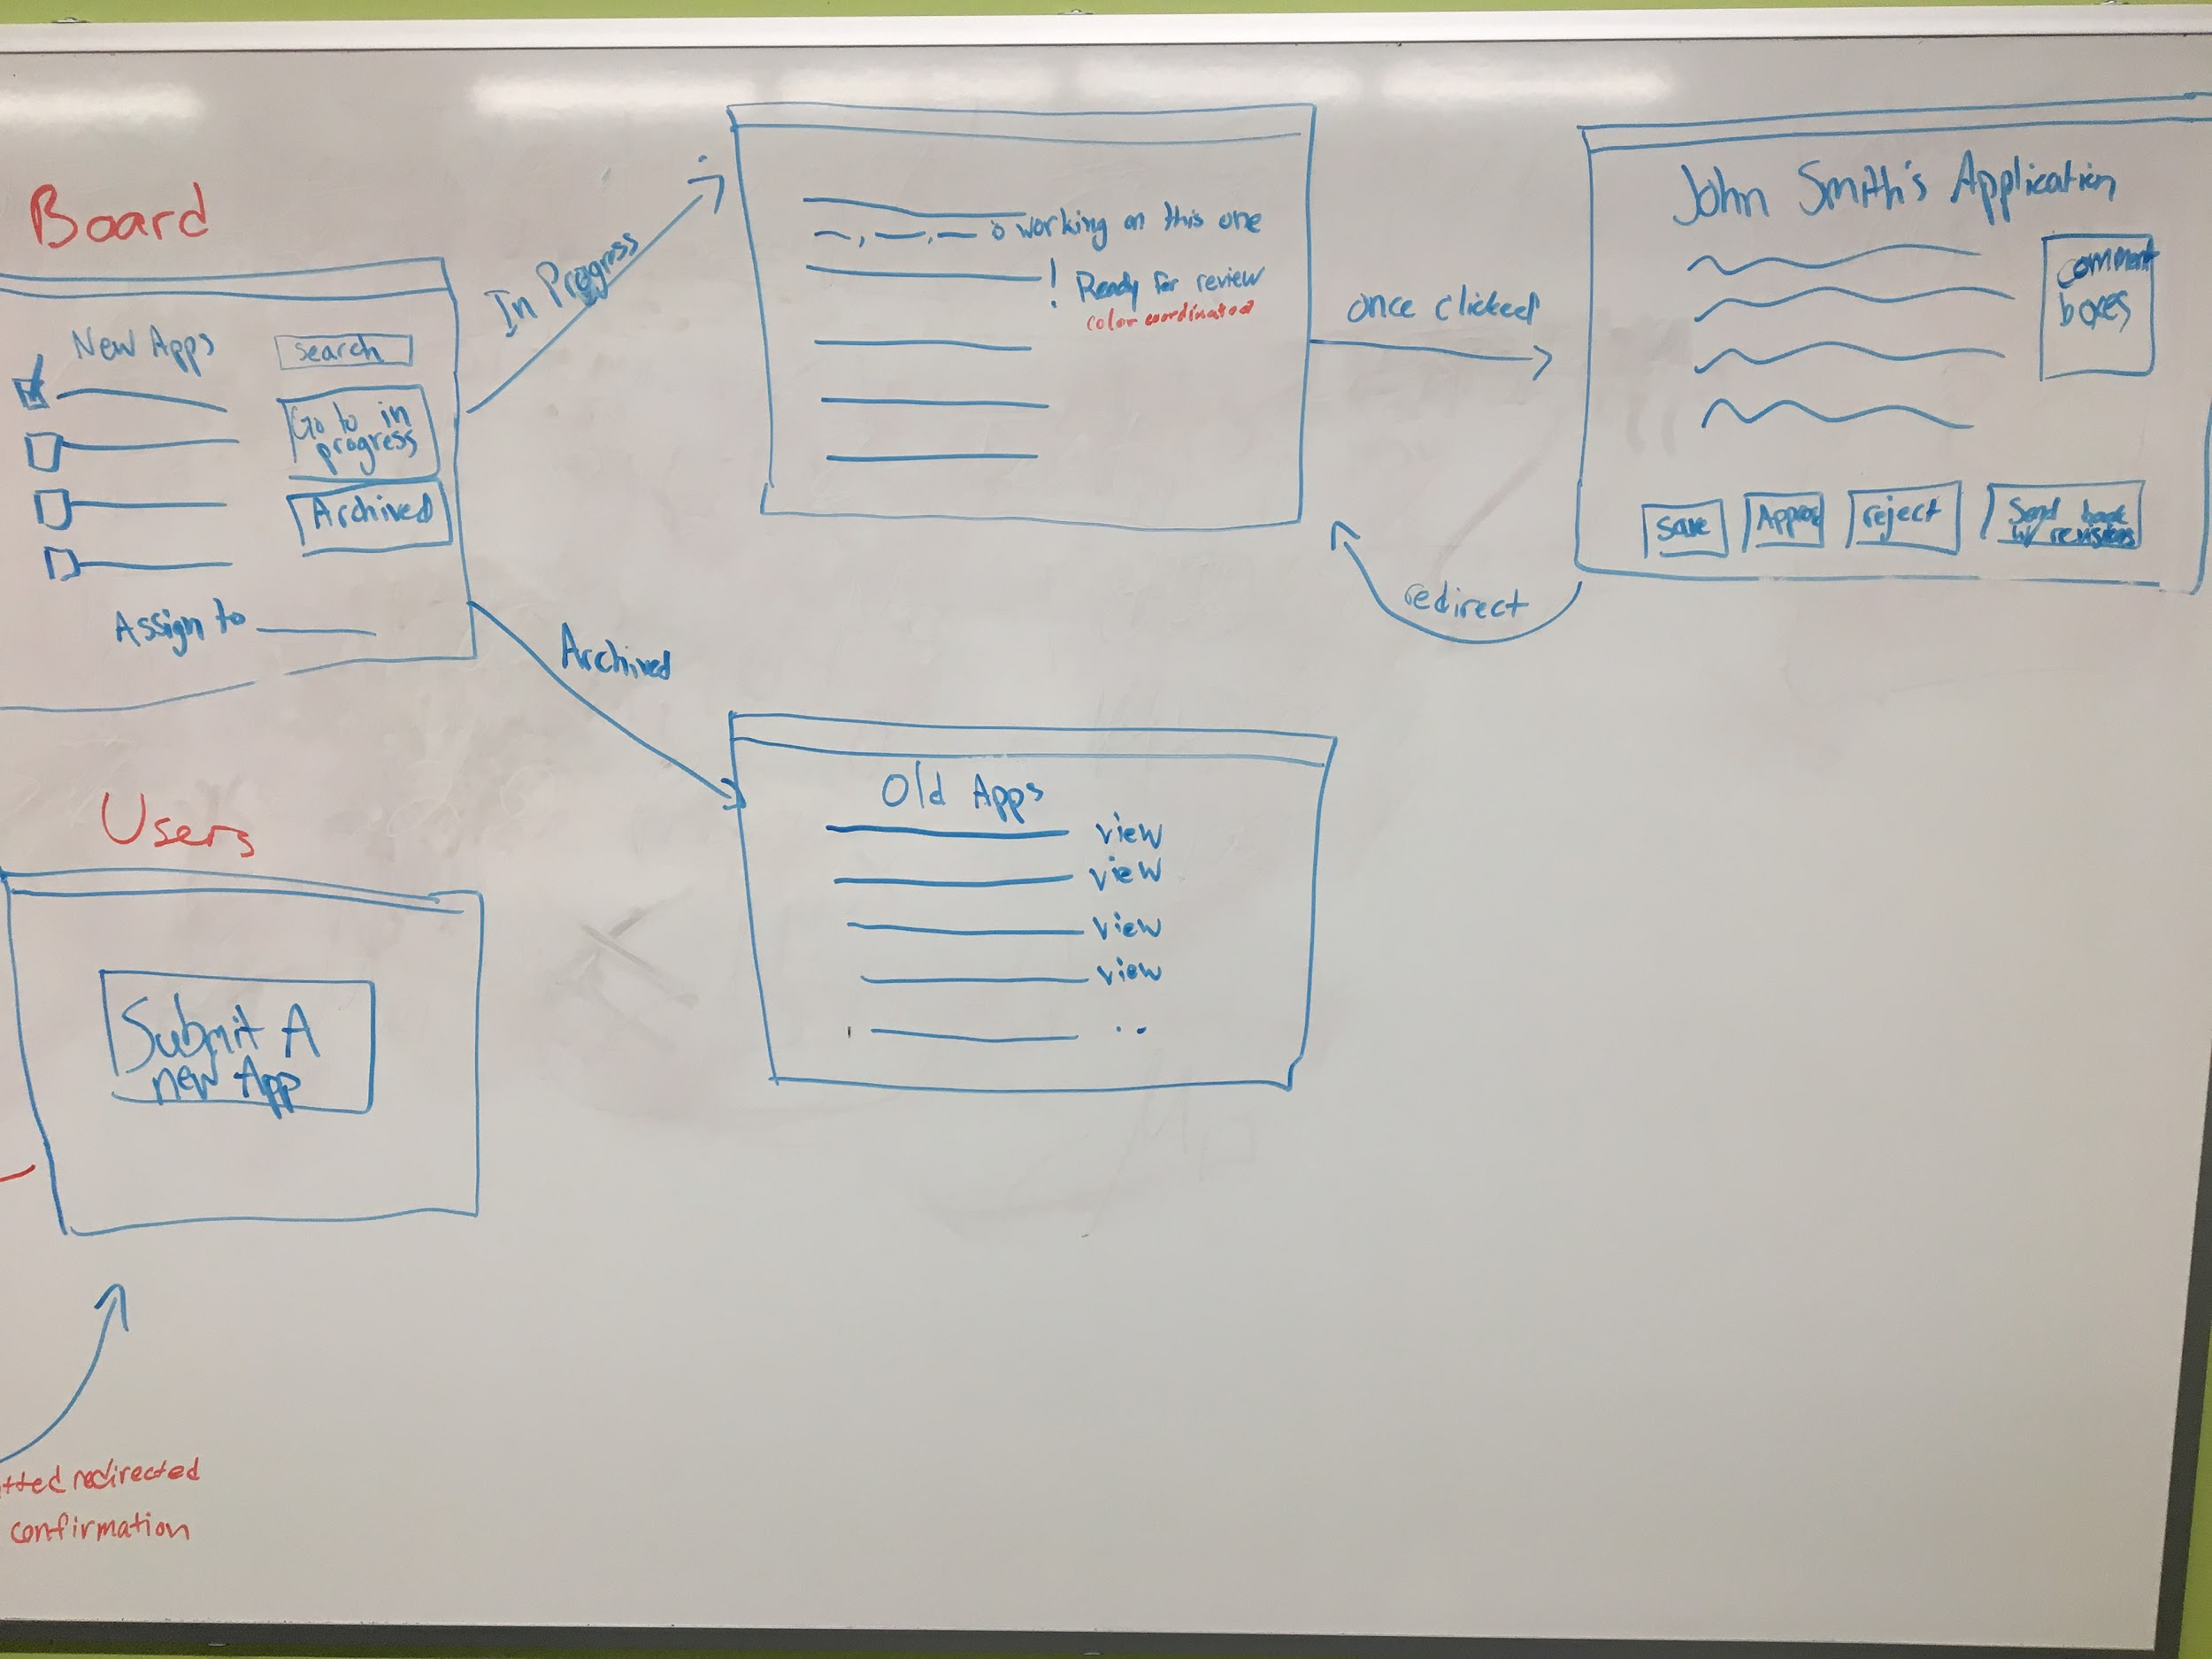 Board
New Apps
search
Go to in
progress
Archived
Assign to
In Progress
Archived
working on this one
! Ready for review
color coordinated
once clicked
redirect
John Smith's Application
comment
boxes
save
reject
Send back
w/ revisions
Old Apps
view
view
view
view
Users
Submit A
new App
redirected
confirmation